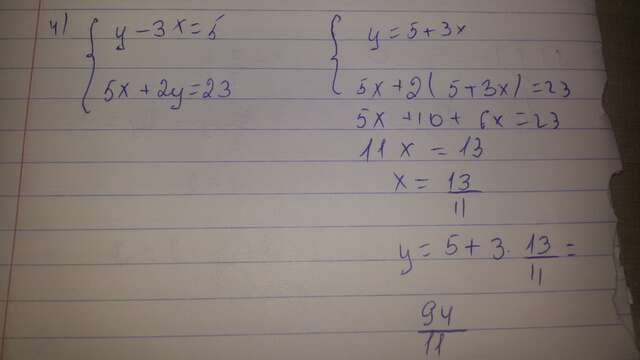 4) { y - 3x = 5
5x + 2y = 23
{ y = 5 + 3x
5x + 2(5 + 3x) = 23
5x + 10 + 6x = 23
11x = 13
x = 13/11
y = 5 + 3 · 13/11 =
94/11